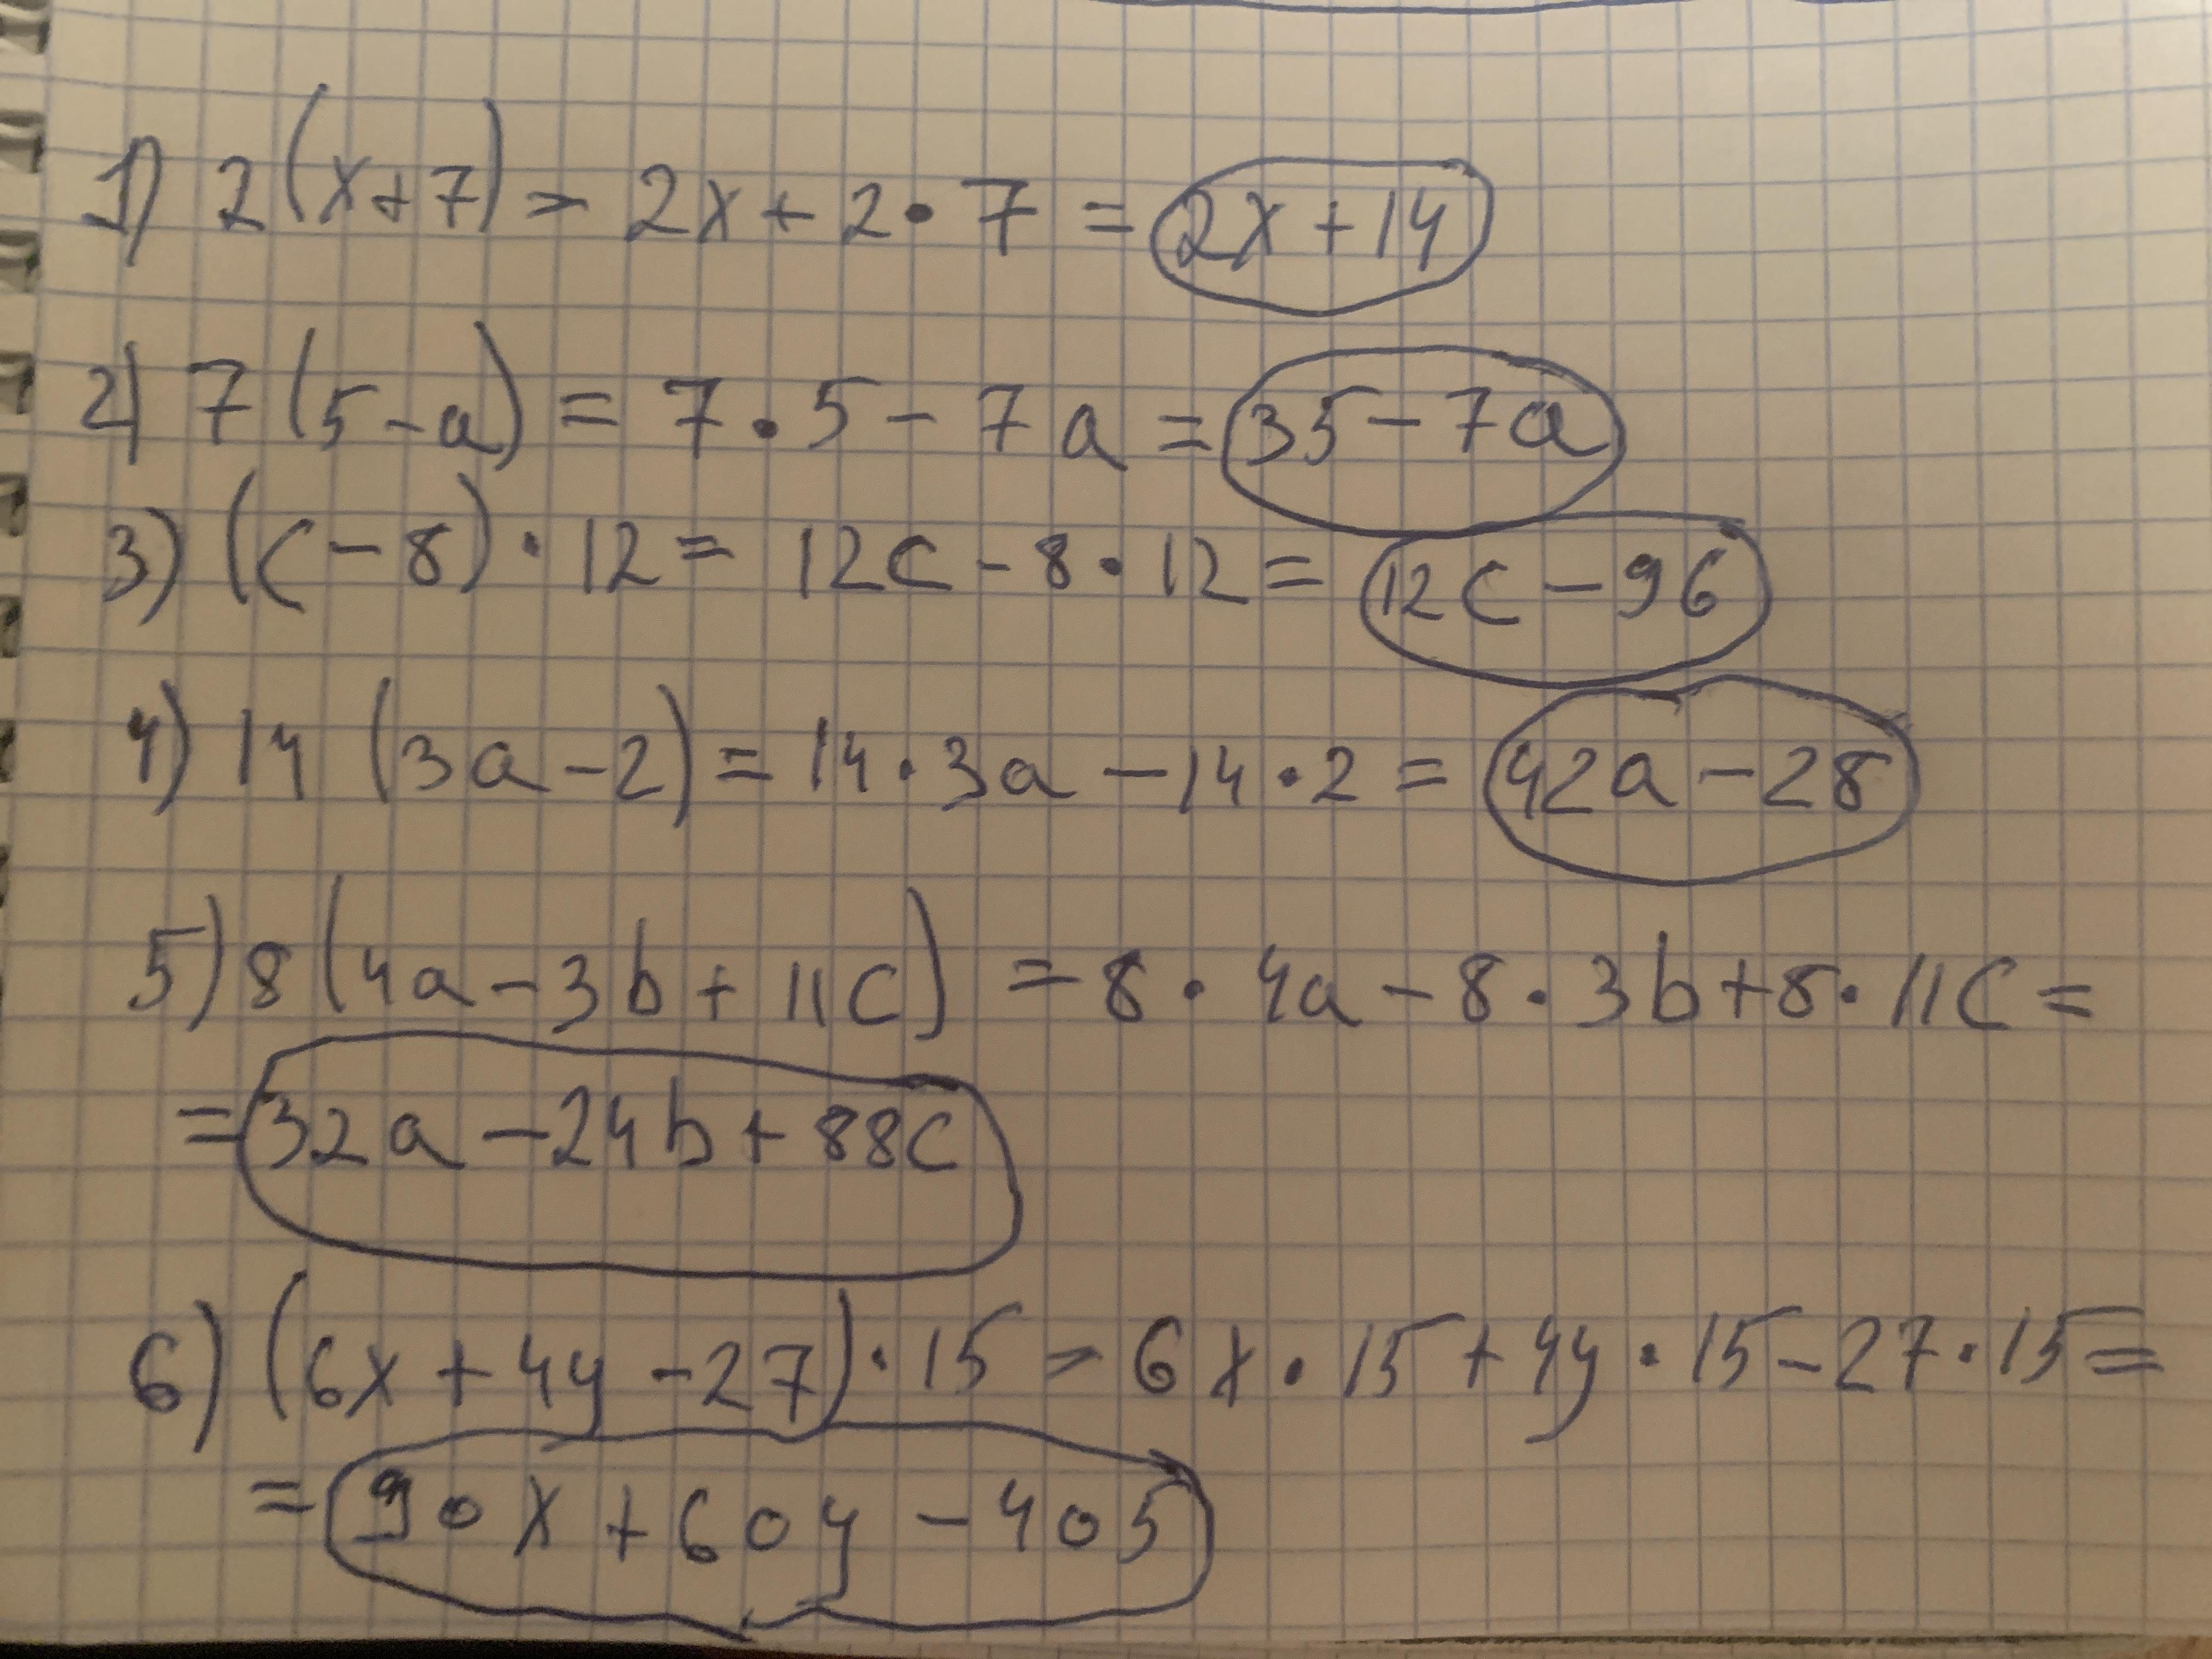 1) 2(x+7) = 2x + 2 • 7 = 2x + 14
2) 7(5-a) = 7 • 5 - 7a = 35 - 7a
3) (c-8) · 12 = 12c - 8 · 12 = 12c - 96
4) 14 (3a-2) = 14 · 3a - 14 · 2 = 42a - 28
5) 8(4a-3b+11c) = 8 · 4a - 8 · 3b + 8 · 11c =
= 32a - 24b + 88c
6) (6x+4y-27) · 15 = 6x · 15 + 4y · 15 - 27 · 15 =
= 90x + 60y - 405